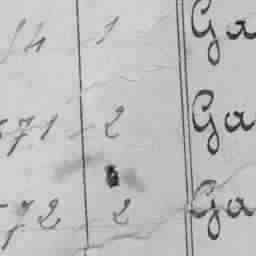 1 Ga
571 2 Ga
572 2 Ga